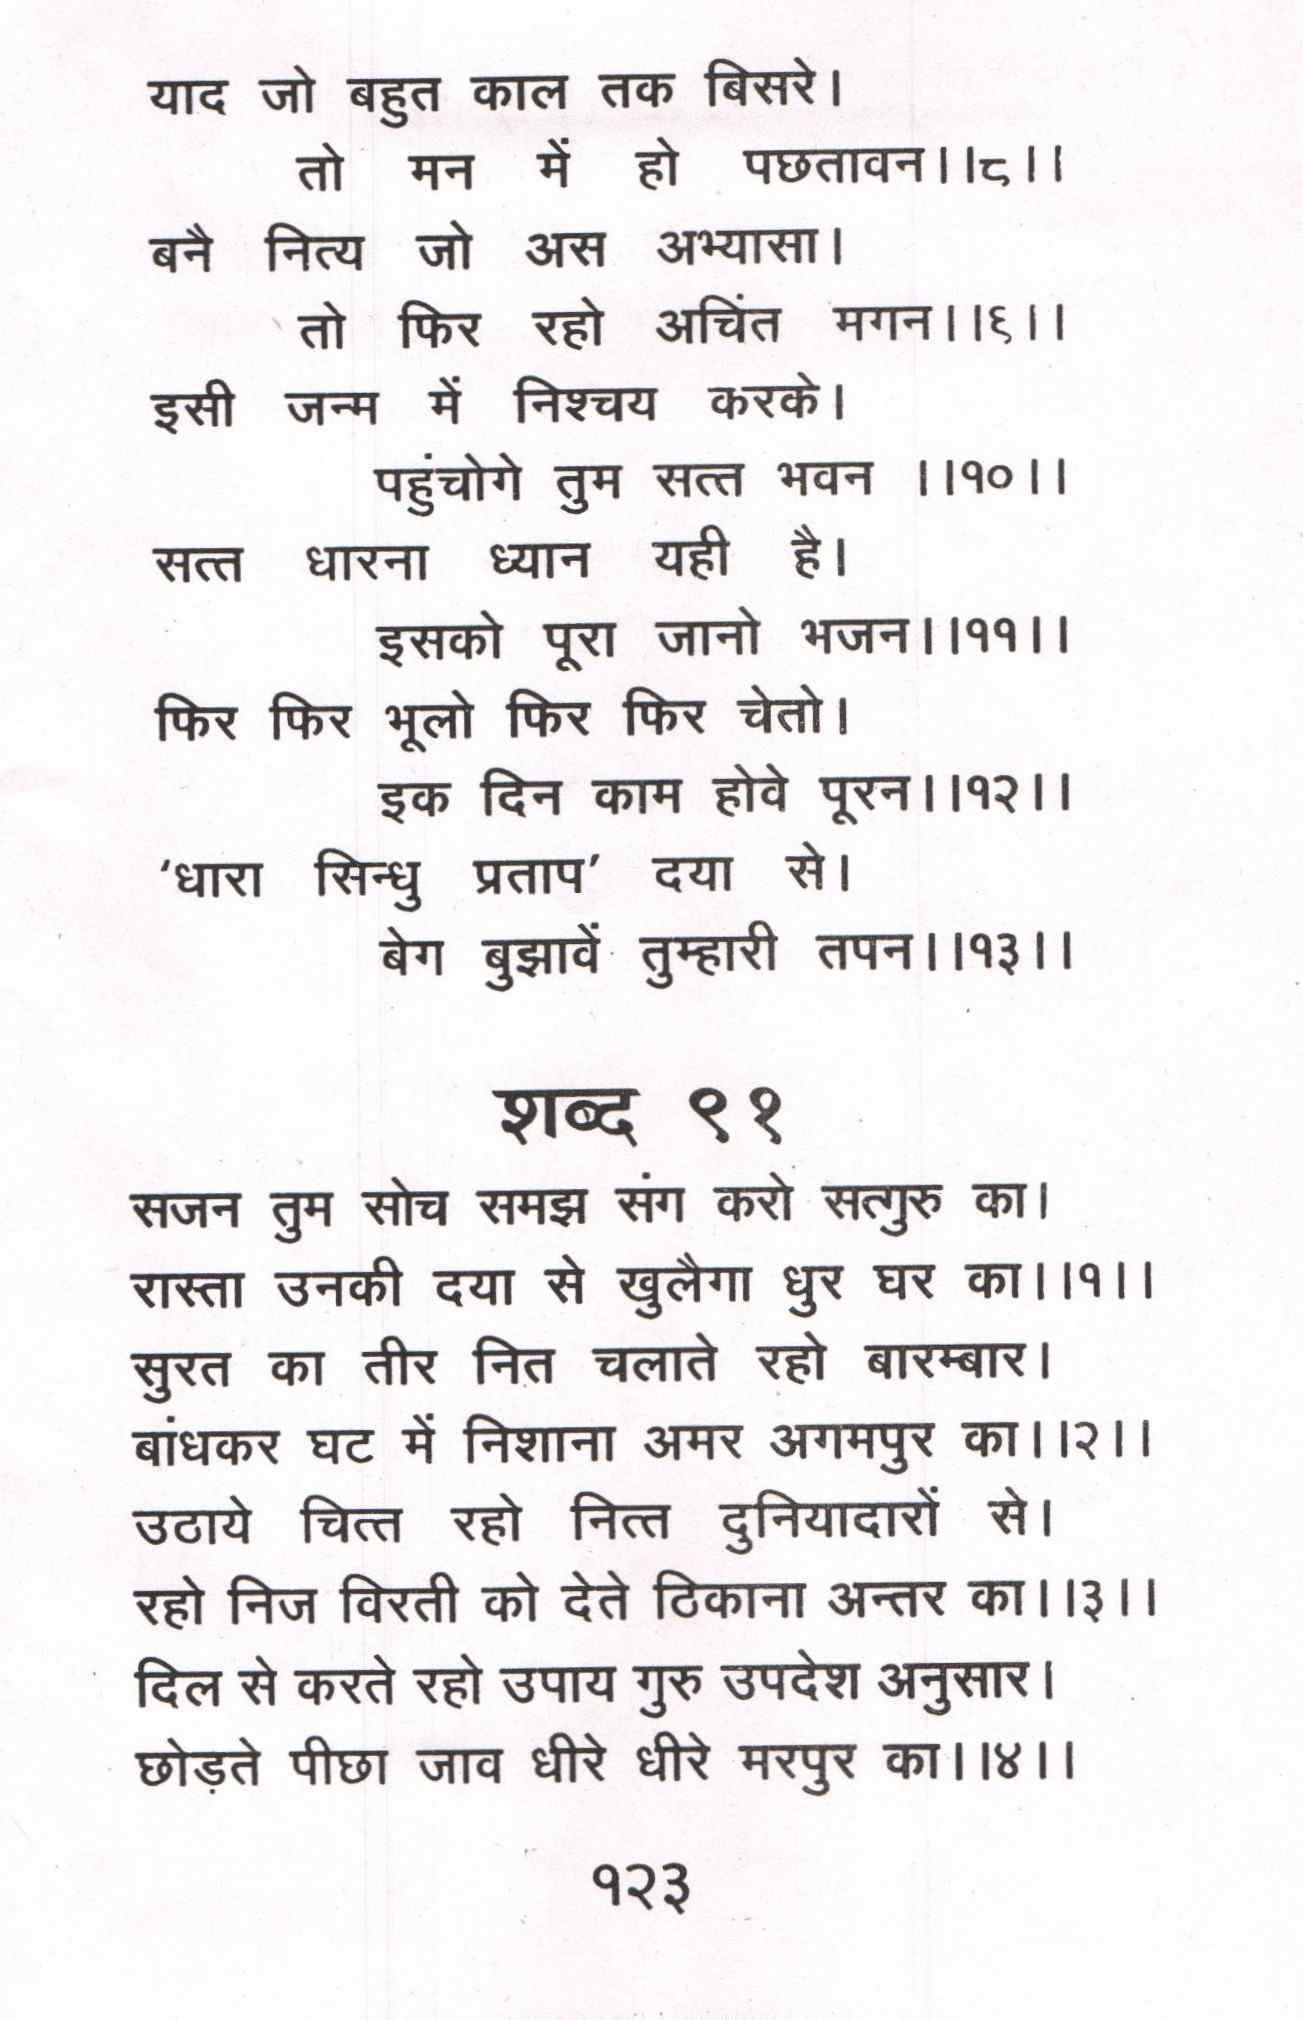 याद जो बहुत काल तक बिसरे।
तो मन में हो पछतावन।।८।।
बनै नित्य जो अस अभ्यासा।
तो फिर रहो अचिंत मगन।।९।।
इसी जन्म में निश्चय करके।
पहुंचोगे तुम सत्त भवन ।।१०।।
सत्त धारना ध्यान यही है।
इसको पूरा जानो भजन।।११।।
फिर फिर भूलो फिर फिर चेतो।
इक दिन काम होवे पूरन।।१२।।
‘धारा सिन्धु प्रताप’ दया से।
बेग बुझावें तुम्हारी तपन।।१३।।
शब्द ९१
सजन तुम सोच समझ संग करो सत्गुरु का।
रास्ता उनकी दया से खुलैगा धुर घर का।।१।।
सुरत का तीर नित चलाते रहो बारम्बार।
बांधकर घट में निशाना अमर अगमपुर का।।२।।
उठाये चित्त रहो नित्त दुनियादारों से।
रहो निज विरती को देते ठिकाना अन्तर का।।३।।
दिल से करते रहो उपाय गुरु उपदेश अनुसार।
छोड़ते पीछा जाव धीरे धीरे मरपुर का।।४।।
१२३